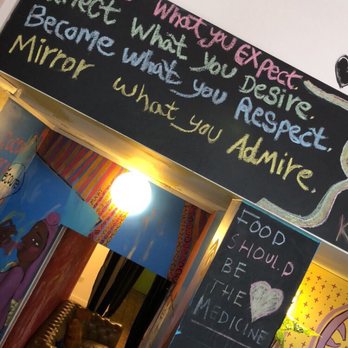 What you EXpect.
what You Desire.
Become what you Respect.
Mirror what you Admire.
FOOD
SHOULD
BE
THE
MEDICINE